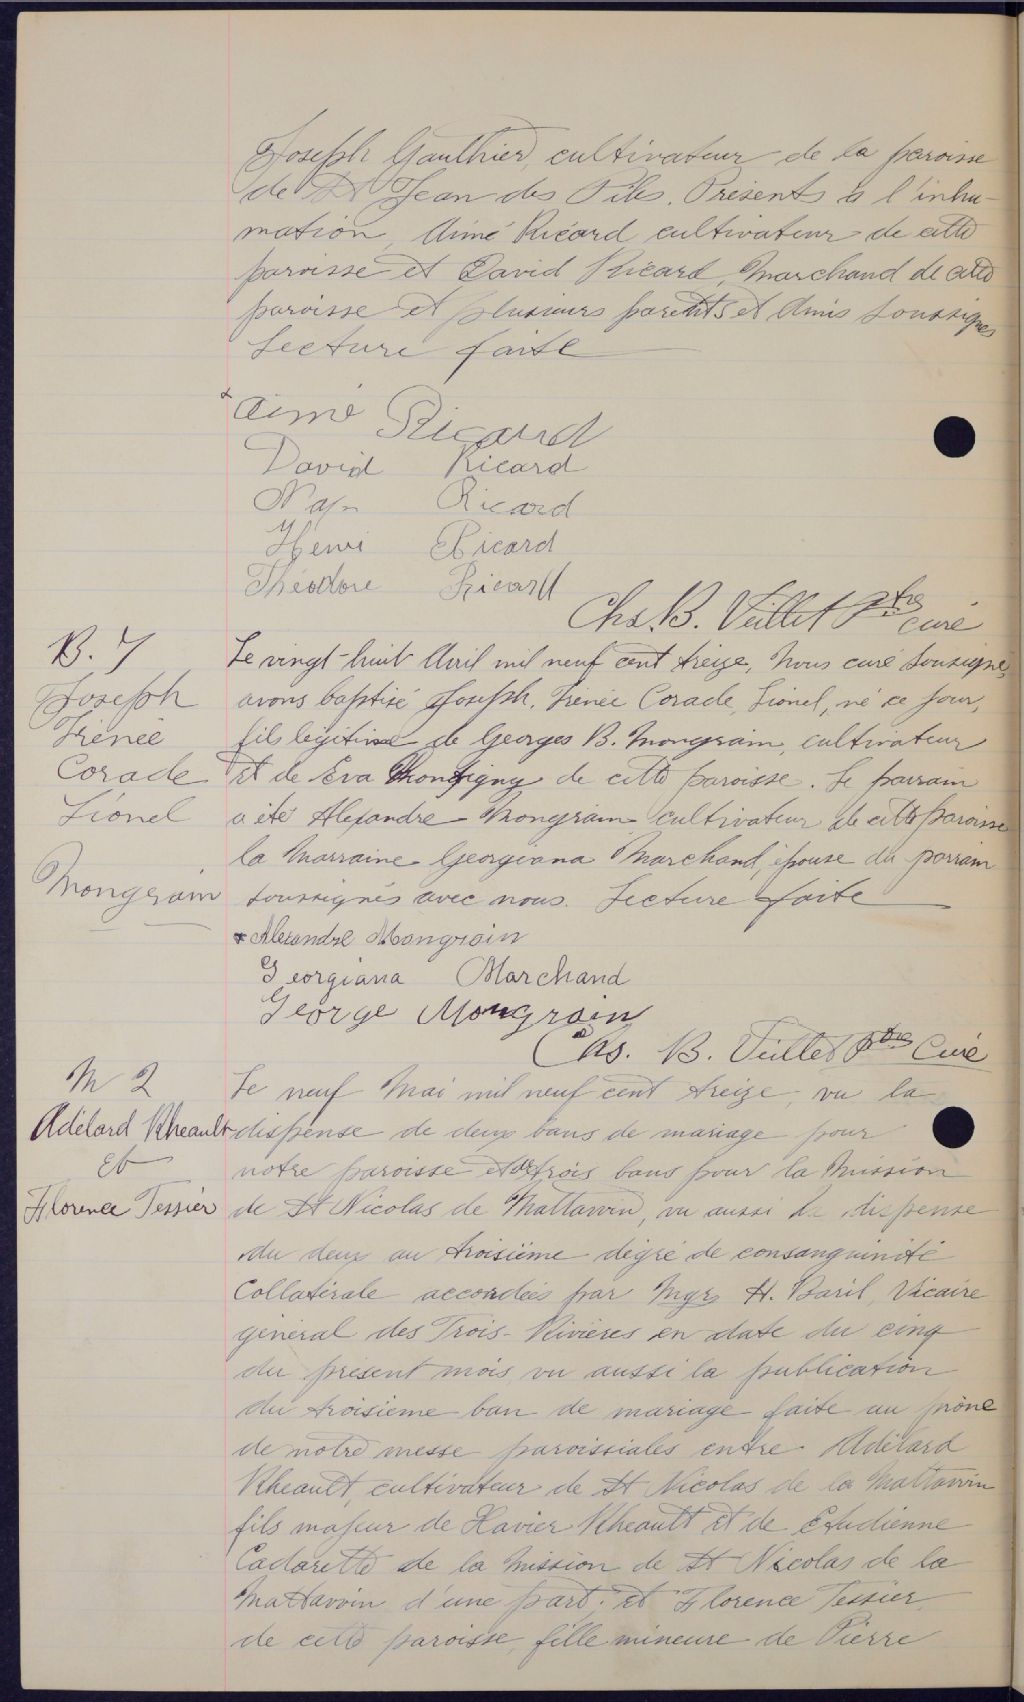 Joseph Gauthier, cultivateur de la paroisse
de St Jean des Piles. Présents à l'inhu-
mation, Aimé Ricard cultivateur de cette
paroisse et David Ricard, Marchand de cette
paroisse et plusieurs parents et Amis soussignés
Lecture faite
x Aimé Ricard
David Ricard
Nap Ricard
Henri Ricard
Théodore Ricard
Chs. B. Veillet Ptre curé
B. 7
Joseph
Irénée
Corade
Lionel
Mongrain
Le vingt-huit Avril mil neuf cent treize, Nous curé soussigné,
avons baptisé Joseph, Irénée Corade, Lionel, né ce jour,
fils légitime de Georges B. Mongrain, cultivateur
et de Eva Montigny de cette paroisse. Le parrain
a été Alexandre Mongrain cultivateur de cette paroisse
la Marraine Georgiana Marchand, épouse du parrain
soussignés avec nous. Lecture faite
x Alexandre Mongrain
Georgiana Marchand
George Mongrain
Chs. B. Veillet Ptre Curé
M 2
Adélard Rheault
Et
Florence Tessier
Le neuf Mai mil neuf cent treize, vu la
dispense de deux bans de mariage pour
notre paroisse et de trois bans pour la Mission
de St Nicolas de Mattawin, vu aussi la dispense
du deux au troisième dégré de consanguinité
Collatérale accordées par Mgr H. Baril, Vicaire
général des Trois-Rivières en date du cinq
du présent mois, vu aussi la publication
du troisième ban de mariage faite au prône
de notre messe paroissiales entre Adélard
Rheault, cultivateur de St Nicolas de la Mattawin
fils majeur de Xavier Rheault et de
Cadorette de la Mission de St Nicolas de la
Mattawin d'une part; et Florence Tessier
de cette paroisse, fille mineure de Pierre